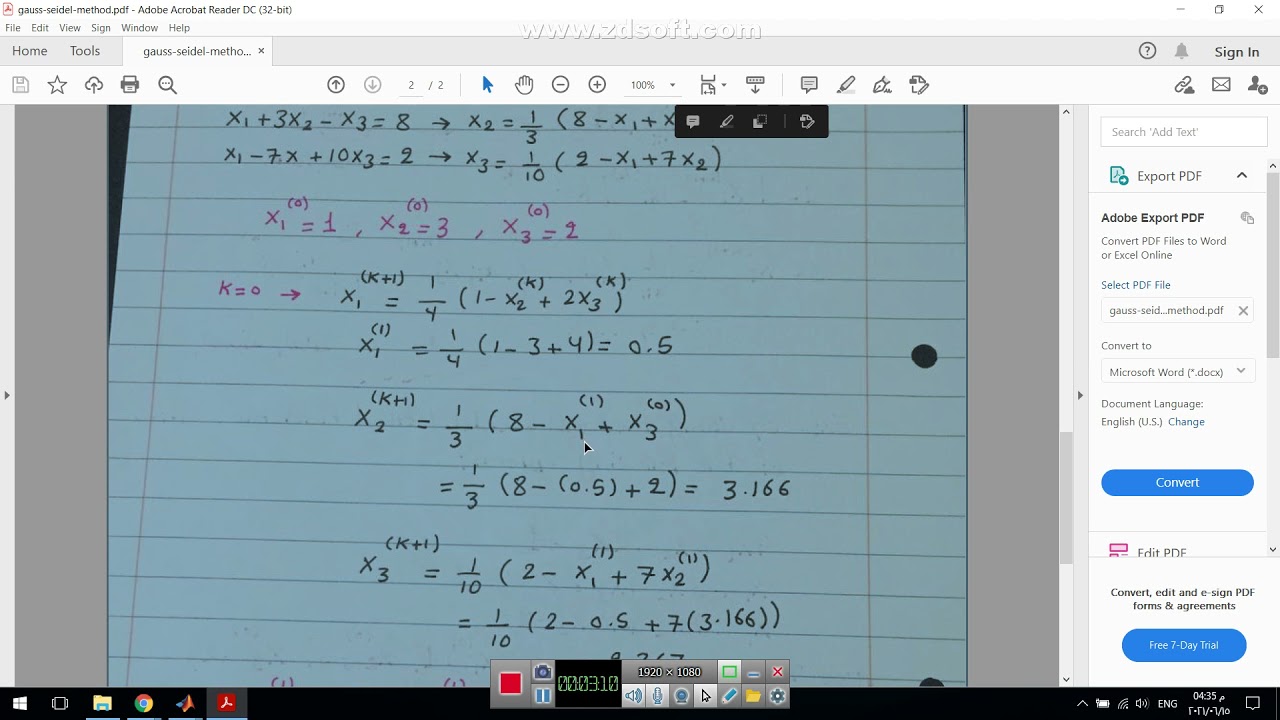 gauss-seidel-method.pdf - Adobe Acrobat Reader DC (32-bit)
www.zdsoft.com
File Edit View Sign Window Help
Home Tools gauss-seidel-metho... × Sign In
2 / 2 100%
x₁+3x₂-x₃=8 → x₂=1/3 (8-x₁+x
x₁-7x+10x₃=2 → x₃=1/10 (2-x₁+7x₂)
x₁⁽⁰⁾=1 , x₂⁽⁰⁾=3 , x₃⁽⁰⁾=2
K=0 → x₁⁽ᴷ⁺¹⁾ = 1/4 (1-x₂⁽ᴷ⁾+2x₃⁽ᴷ⁾)
x₁⁽¹⁾ = 1/4 (1-3+4)= 0.5
x₂⁽ᴷ⁺¹⁾ = 1/3 (8-x₁⁽¹⁾+x₃⁽⁰⁾)
= 1/3 (8-(0.5)+2)= 3.166
x₃⁽ᴷ⁺¹⁾ = 1/10 (2-x₁⁽¹⁾+7x₂⁽¹⁾)
= 1/10 (2-0.5+7(3.166))
Search 'Add Text'
Export PDF
Adobe Export PDF
Convert PDF Files to Word
or Excel Online
Select PDF File
gauss-seid...method.pdf
Convert to
Microsoft Word (*.docx)
Document Language:
English (U.S.) Change
Convert
Edit PDF
Convert, edit and e-sign PDF
forms & agreements
Free 7-Day Trial
00:03:10 1920 × 1080
ENG 04:35 م
٢٠٢١/٠٦/١٥